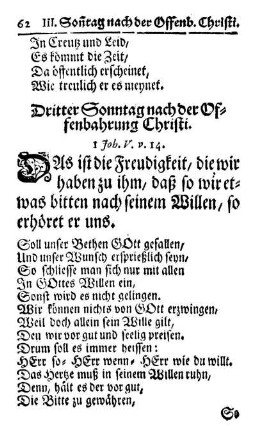 62 III. Sonntag nach der Offenb. Christi.
In Creutz und Leid,
Es kömmt die Zeit,
Da öffentlich erscheinet,
Wie treulich er es meynet.
Dritter Sonntag nach der Of-
fenbahrung Christi.
1 Joh. V. v. 14.
DAs ist die Freudigkeit, die wir
haben zu ihm, daß so wir et-
was bitten nach seinem Willen, so
erhöret er uns.
Soll unser Bethen GOtt gefallen,
Und unser Wunsch ersprießlich seyn,
So schliesse man sich nur mit allen
In GOttes Willen ein,
Sonst wird es nicht gelingen.
Wir können nichts von GOtt erzwingen,
Weil doch allein sein Wille gilt,
Den wir vor gut und seelig preisen.
Drum soll es immer heissen:
HErr so, HErr wenn, HErr wie du willt.
Das Hertze muß in seinem Willen ruhn,
Denn, hält es der vor gut,
Die Bitte zu gewähren,
So